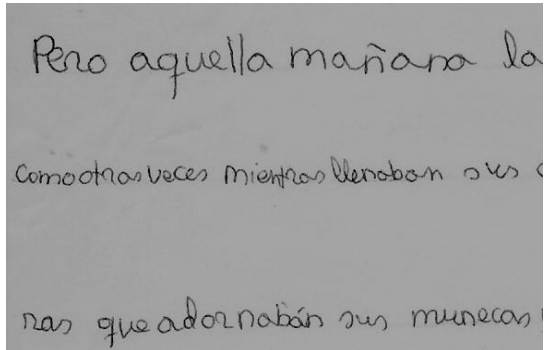 Pero aquella mañana la
comootrasveces mientras llenaban sus
ras que adornabán sus munecas